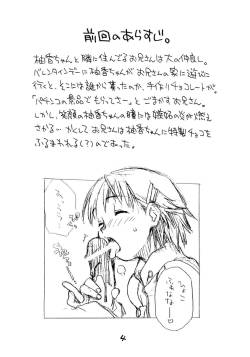 前回のあらすじ。
柚香ちゃんと隣に住んでるお兄さんは大の仲良し。
バレンタインデーに柚香ちゃんがお兄さんの家に遊びに
行くと、そこには誰から貰ったのか、手作りチョコレートが。
「パチンコの景品でもらってさー」とごまかすお兄さん。
しかし、笑顔の柚香ちゃんの瞳には嫉妬の炎が燃え
さかる… かくして お兄さんは柚香に特製チョコを
ふるまわれる(?)のであった。
4